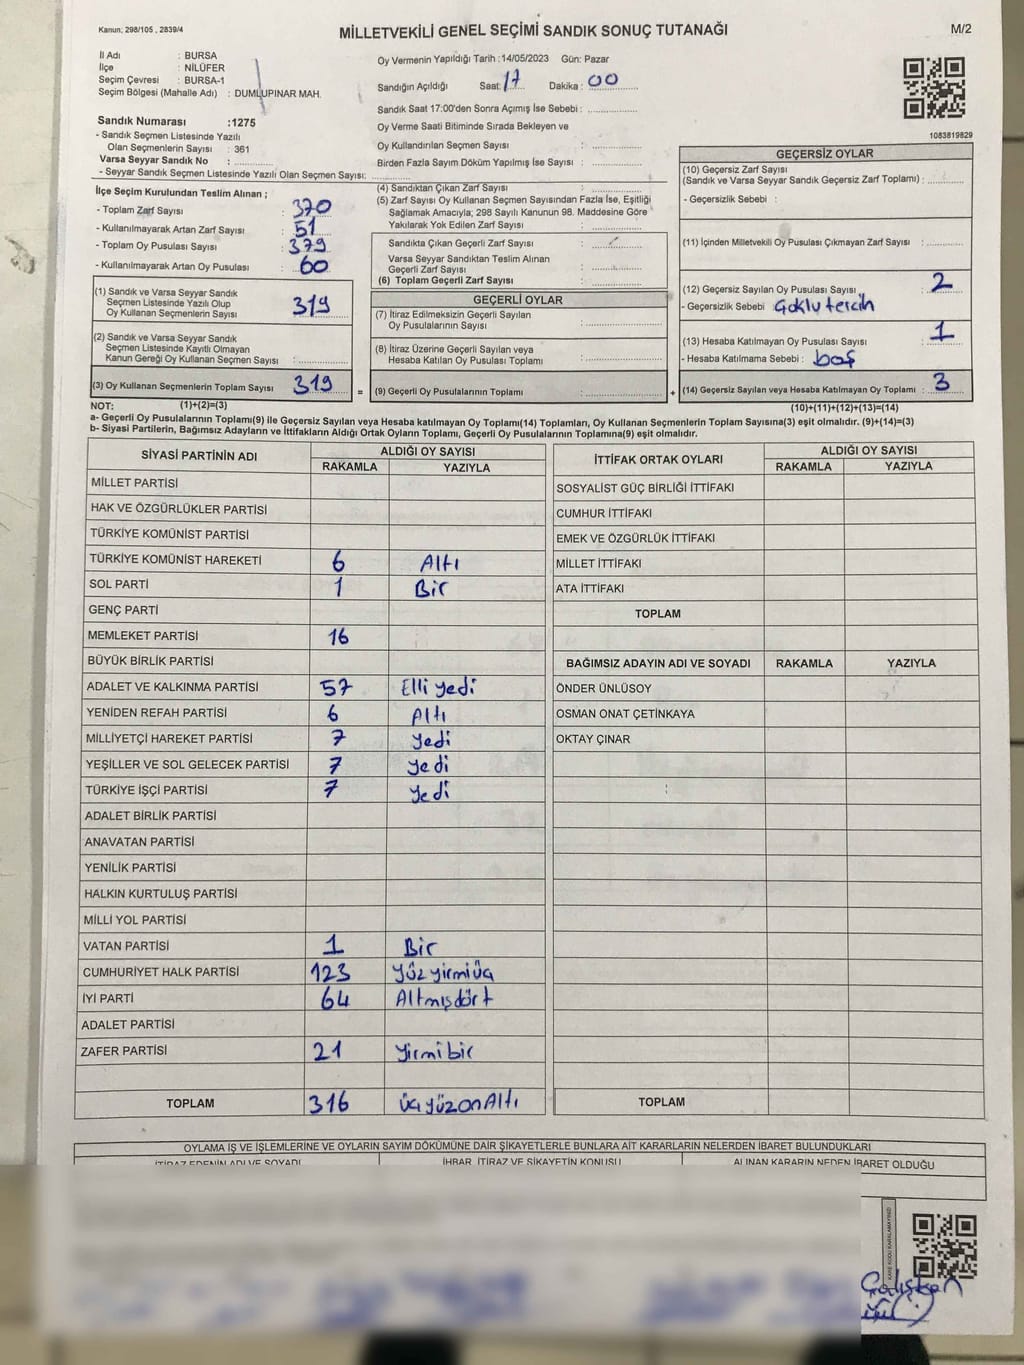 Kanun; 298/105 , 2839/4
MİLLETVEKİLİ GENEL SEÇİMİ SANDIK SONUÇ TUTANAĞI
M/2
İl Adı : BURSA
İlçe : NİLÜFER
Seçim Çevresi : BURSA-1
Seçim Bölgesi (Mahalle Adı) : DUMLUPINAR MAH.
Sandık Numarası :1275
- Sandık Seçmen Listesinde Yazılı
Olan Seçmenlerin Sayısı : 361
Varsa Seyyar Sandık No :
- Seyyar Sandık Seçmen Listesinde Yazılı Olan Seçmen Sayısı:
Oy Vermenin Yapıldığı Tarih :14/05/2023 Gün: Pazar
Sandığın Açıldığı Saat: 17 Dakika : 00
Sandık Saat 17:00'den Sonra Açımış İse Sebebi :
Oy Verme Saati Bitiminde Sırada Bekleyen ve
Oy Kullandırılan Seçmen Sayısı :
Birden Fazla Sayım Döküm Yapılmış İse Sayısı :
1083819829
İlçe Seçim Kurulundan Teslim Alınan ;
- Toplam Zarf Sayısı : 370
- Kullanılmayarak Artan Zarf Sayısı : 51
- Toplam Oy Pusulası Sayısı : 379
- Kullanılmayarak Artan Oy Pusulası : 60
(1) Sandık ve Varsa Seyyar Sandık
Seçmen Listesinde Yazılı Olup
Oy Kullanan Seçmenlerin Sayısı : 319
(2) Sandık ve Varsa Seyyar Sandık
Seçmen Listesinde Kayıtlı Olmayan
Kanun Gereği Oy Kullanan Seçmen Sayısı :
(3) Oy Kullanan Seçmenlerin Toplam Sayısı 319 =
(4) Sandıktan Çıkan Zarf Sayısı :
(5) Zarf Sayısı Oy Kullanan Seçmen Sayısından Fazla İse, Eşitliği
Sağlamak Amacıyla; 298 Sayılı Kanunun 98. Maddesine Göre
Yakılarak Yok Edilen Zarf Sayısı :
Sandıkta Çıkan Geçerli Zarf Sayısı :
Varsa Seyyar Sandıktan Teslim Alınan
Geçerli Zarf Sayısı :
(6) Toplam Geçerli Zarf Sayısı :
GEÇERLİ OYLAR
(7) İtiraz Edilmeksizin Geçerli Sayılan
Oy Pusulalarının Sayısı :
(8) İtiraz Üzerine Geçerli Sayılan veya
Hesaba Katılan Oy Pusulası Toplamı :
(9) Geçerli Oy Pusulalarının Toplamı : +
GEÇERSİZ OYLAR
(10) Geçersiz Zarf Sayısı
(Sandık ve Varsa Seyyar Sandık Geçersiz Zarf Toplamı) :
- Geçersizlik Sebebi :
(11) İçinden Milletvekili Oy Pusulası Çıkmayan Zarf Sayısı :
(12) Geçersiz Sayılan Oy Pusulası Sayısı : 2
- Geçersizlik Sebebi : Çoklu tercih
(13) Hesaba Katılmayan Oy Pusulası Sayısı : 1
- Hesaba Katılmama Sebebi : boş
(14) Geçersiz Sayılan veya Hesaba Katılmayan Oy Toplamı : 3
NOT: (1)+(2)=(3)
(10)+(11)+(12)+(13)=(14)
a- Geçerli Oy Pusulalarının Toplamı(9) ile Geçersiz Sayılan veya Hesaba katılmayan Oy Toplamı(14) Toplamları, Oy Kullanan Seçmenlerin Toplam Sayısına(3) eşit olmalıdır. (9)+(14)=(3)
b- Siyasi Partilerin, Bağımsız Adayların ve İttifakların Aldığı Ortak Oyların Toplamı, Geçerli Oy Pusulalarının Toplamına(9) eşit olmalıdır.
SİYASİ PARTİNİN ADI ALDIĞI OY SAYISI
RAKAMLA YAZIYLA
MİLLET PARTİSİ
HAK VE ÖZGÜRLÜKLER PARTİSİ
TÜRKİYE KOMÜNİST PARTİSİ
TÜRKİYE KOMÜNİST HAREKETİ 6 Altı
SOL PARTİ 1 Bir
GENÇ PARTİ
MEMLEKET PARTİSİ 16
BÜYÜK BİRLİK PARTİSİ
ADALET VE KALKINMA PARTİSİ 57 Elli yedi
YENİDEN REFAH PARTİSİ 6 Altı
MİLLİYETÇİ HAREKET PARTİSİ 7 yedi
YEŞİLLER VE SOL GELECEK PARTİSİ 7 yedi
TÜRKİYE İŞÇİ PARTİSİ 7 yedi
ADALET BİRLİK PARTİSİ
ANAVATAN PARTİSİ
YENİLİK PARTİSİ
HALKIN KURTULUŞ PARTİSİ
MİLLİ YOL PARTİSİ
VATAN PARTİSİ 1 Bir
CUMHURİYET HALK PARTİSİ 123 Yüz yirmiüç
İYİ PARTİ 64 Altmışdört
ADALET PARTİSİ
ZAFER PARTİSİ 21 yirmibir
TOPLAM 316 üçyüzonAltı
İTTİFAK ORTAK OYLARI ALDIĞI OY SAYISI
RAKAMLA YAZIYLA
SOSYALİST GÜÇ BİRLİĞİ İTTİFAKI
CUMHUR İTTİFAKI
EMEK VE ÖZGÜRLÜK İTTİFAKI
MİLLET İTTİFAKI
ATA İTTİFAKI
TOPLAM
BAĞIMSIZ ADAYIN ADI VE SOYADI RAKAMLA YAZIYLA
ÖNDER ÜNLÜSOY
OSMAN ONAT ÇETİNKAYA
OKTAY ÇINAR
TOPLAM
OYLAMA İŞ VE İŞLEMLERİNE VE OYLARIN SAYIM DÖKÜMÜNE DAİR ŞİKAYETLERLE BUNLARA AİT KARARLARIN NELERDEN İBARET BULUNDUKLARI
İTİRAZ EDENİN ADI VE SOYADI İHBAR, İTİRAZ VE ŞİKAYETİN KONUSU ALINAN KARARIN NEDEN İBARET OLDUĞU
KARE KODU KARALAMAYINIZ!
Çalışkan